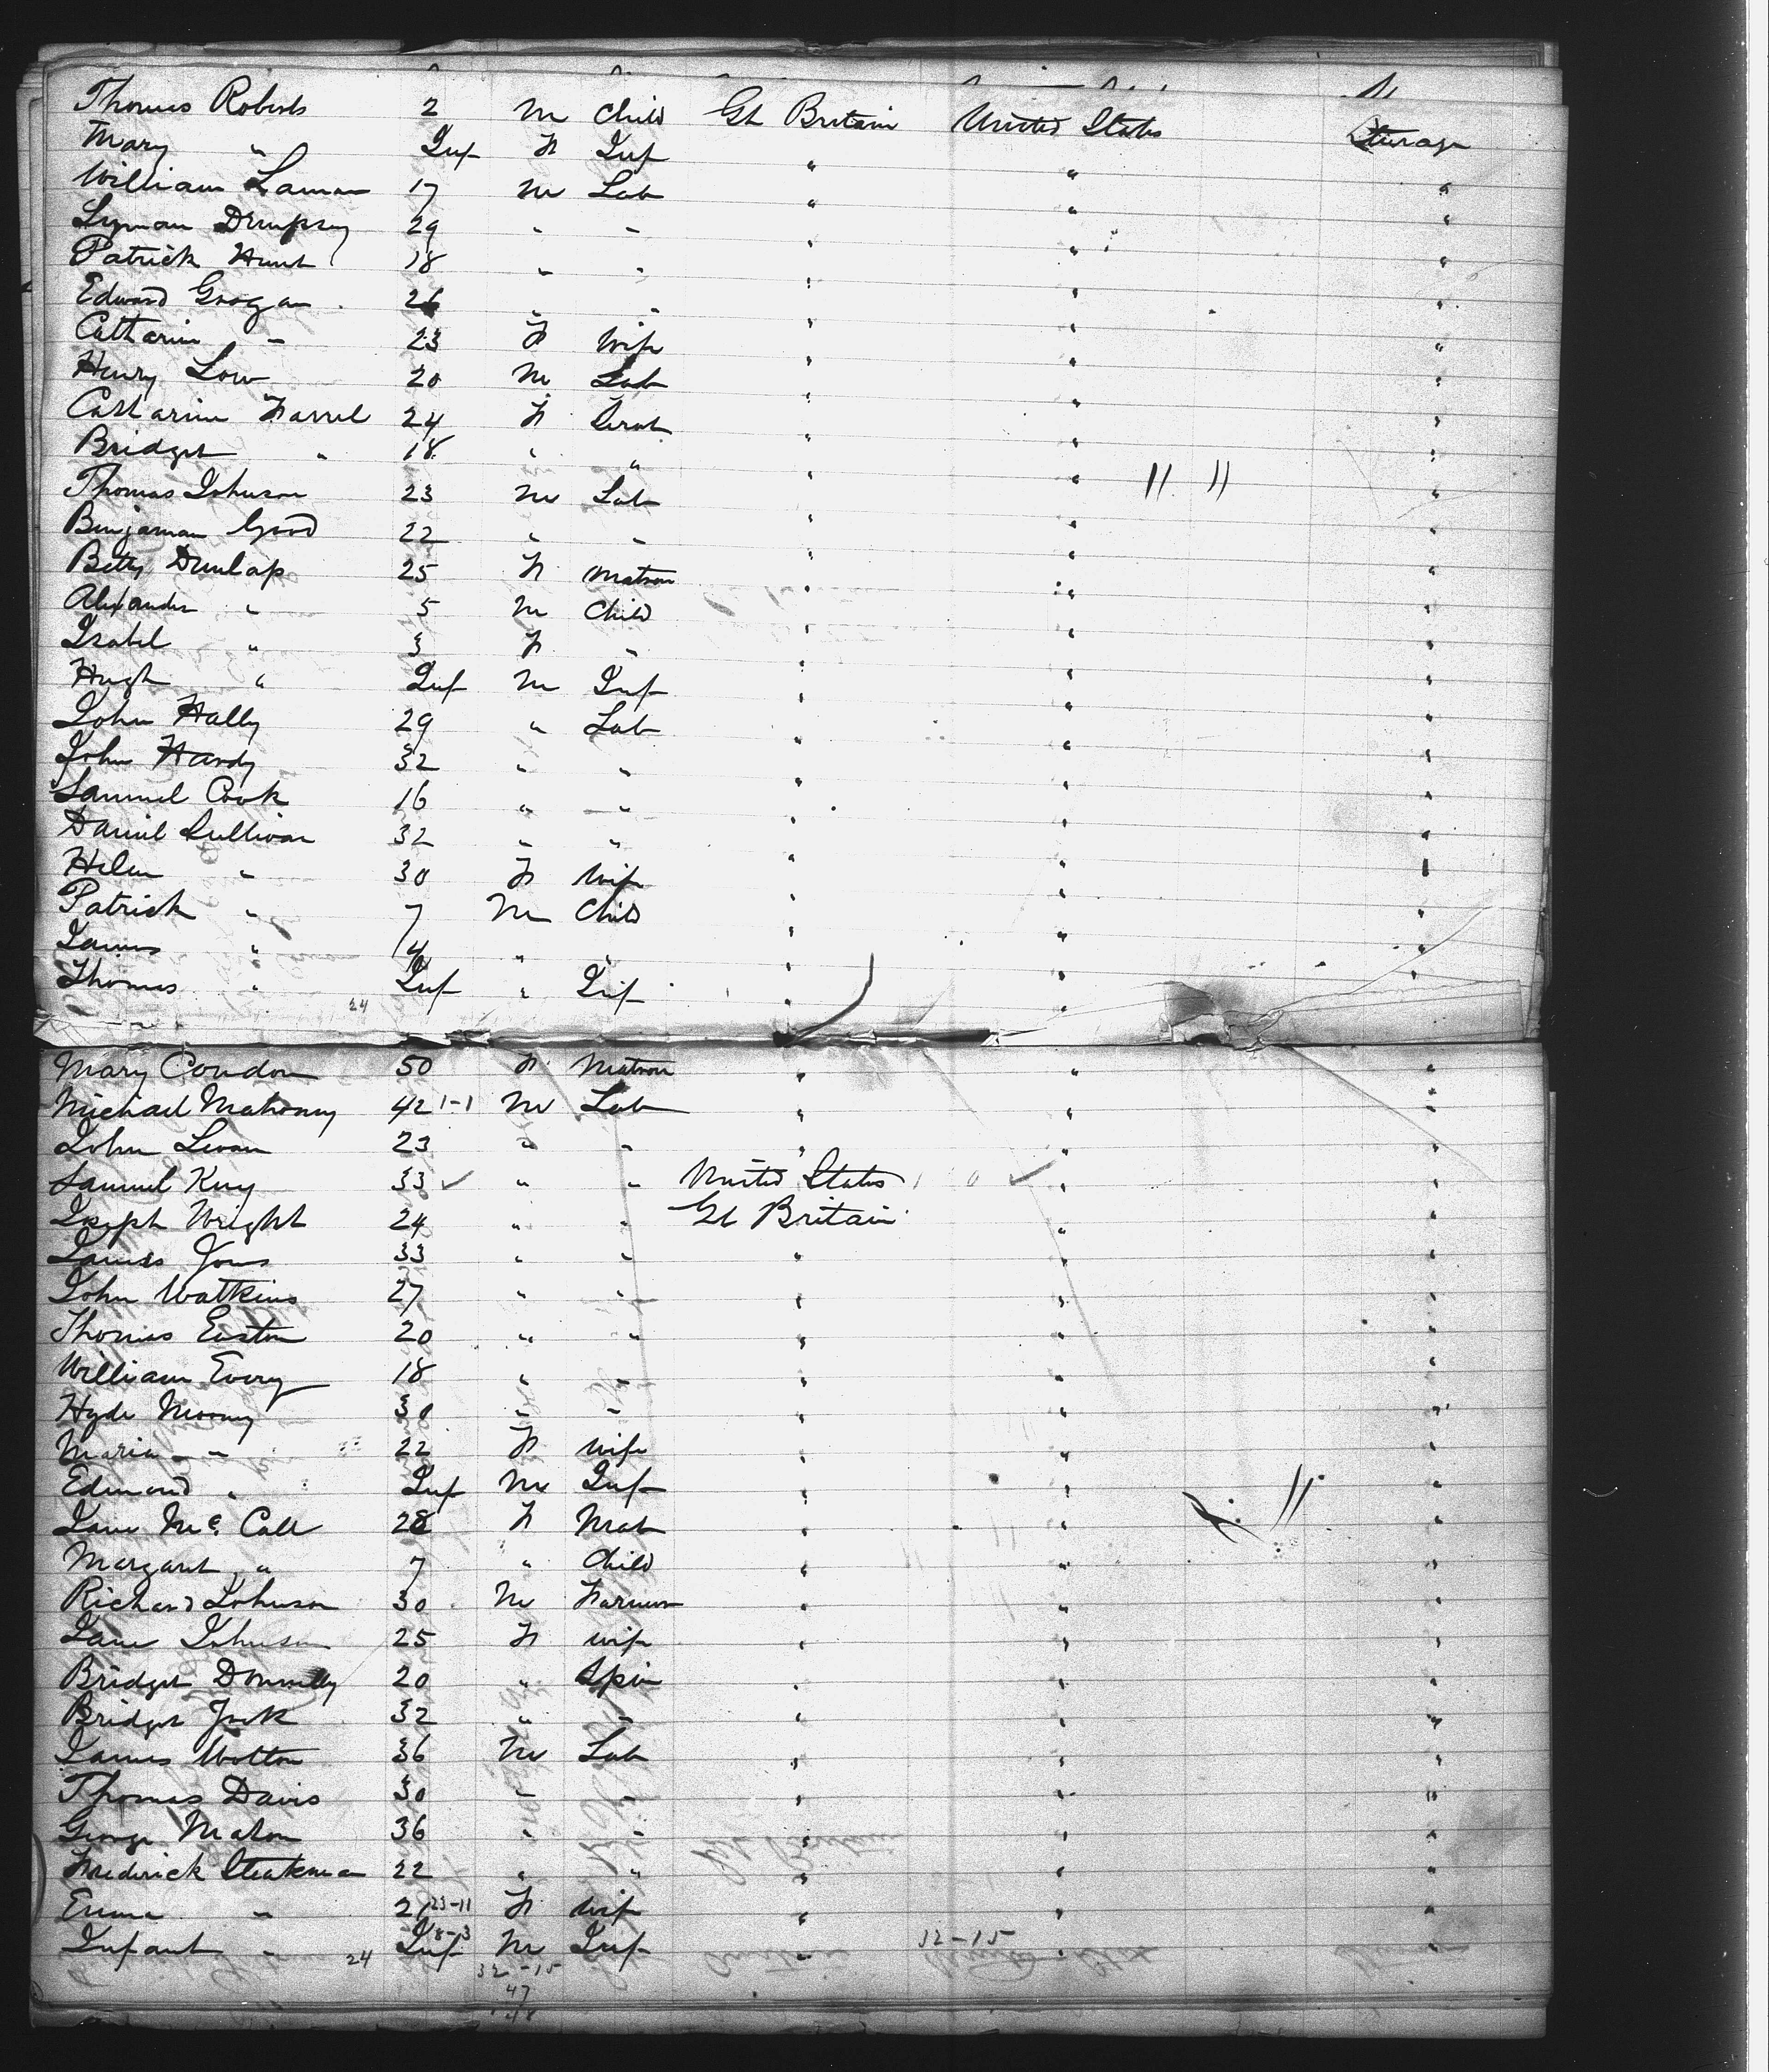 Thomas Roberts 2 M Child Gt Britain United States Steerage
Mary " Inf F Inf " " "
William Laman 17 M Lab " " "
Lyman Dempsey 29 " " " " "
Patrick Hunt 18 " " " " "
Edward Grogan 26 " " " " "
Catharin " 23 F Wife " " "
Henry Low 20 M Lab " " "
Catharine Farrel 24 F Servt " " "
Bridget " 18 " " " " "
Thomas Johnson 23 M Lab " " "
Benjaman Good 22 " " " " "
Betty Dunlap 25 F Matron " " "
Alexander " 5 M Child " " "
Isabel " 3 F " " " "
Hugh " Inf M Inf " " "
John Hally 29 " Lab " " "
John Hardy 32 " " " " "
Samuel Cook 16 " " " " "
Daniel Sullivan 32 " " " " "
Helen " 30 F Wife " " "
Patrick " 7 M Child " " "
James " 4 " " " " "
Thomas " Inf " Inf " "
24
Mary Condon 50 F Matron " " "
Michael Mahoney 42 1-1 M Lab " " "
John 23 " " " " "
Samuel King 33 " " United States " "
Joseph Wright 24 " " Gt Britain " "
James Jones 33 " " " " "
John Watkins 27 " " " " "
Thomas Easton 20 " " " " "
William Every 18 " " " " "
Hyde Mooney 30 " " " " "
Maria " 22 F Wife " " "
Edmond " Inf M Inf " " "
Jane McCall 28 F Mat " " "
Margaret " 7 " Child " " "
Richard Johnson 30 M Farmer " " "
Jane Johnson 25 F Wife " " "
Bridget Donnelly 20 " Spin " " "
Bridget Jork 32 " " " " "
James Wolton 36 M Lab " " "
Thomas Davis 30 " " " " "
George Maton 36 " " " " "
Frederick Steakman 22 " " " " "
Emma " 21 23-11 F Wife " " "
Infant " 24 Inf 8-3 M Inf " 32-15 "
32-15
47
48